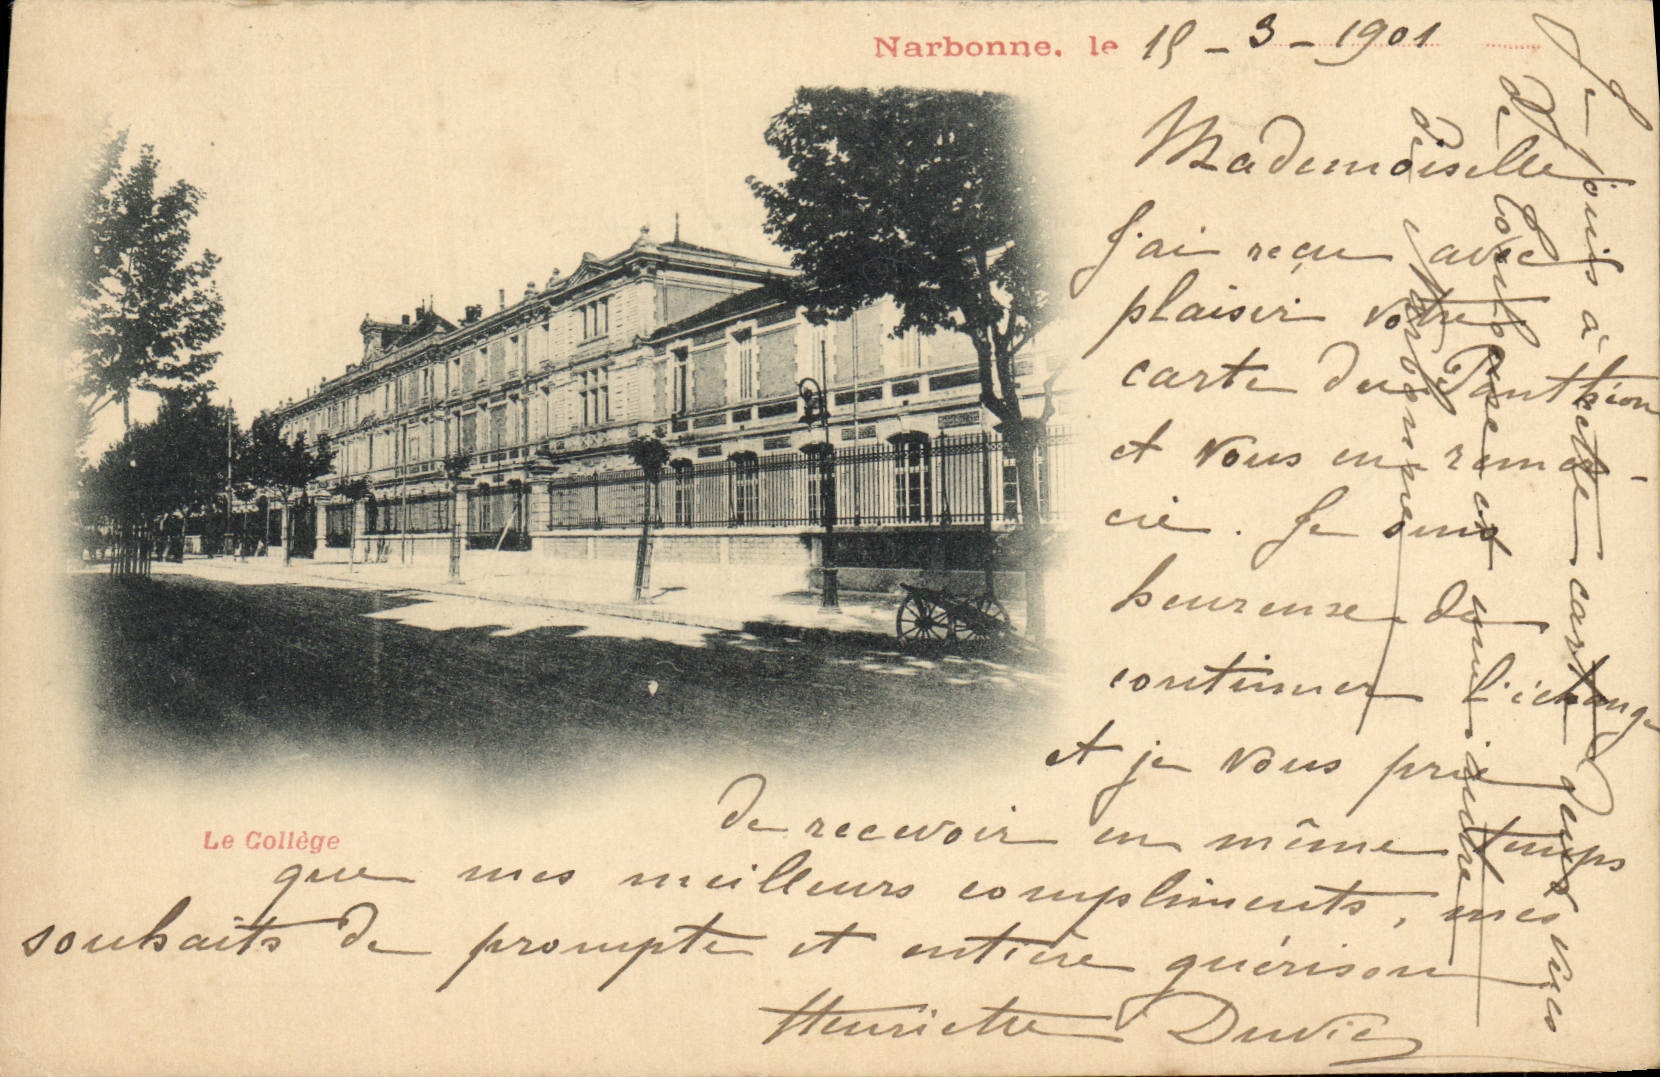 Narbonne, le 15-3-1901
Mademoiselle
J'ai reçu avec
plaisir votre
carte du Panthéon
et vous en remer-
cie. Je suis
heureuse de
continuer l'échange
et je vous prie
de recevoir en même temps
que mes meilleurs compliments, mes
souhaits de prompte et entière guérison
Henriette Duvic
Le Collège
Je joins à cette carte deux vues
de Carcassonne et une autre
de Narbonne